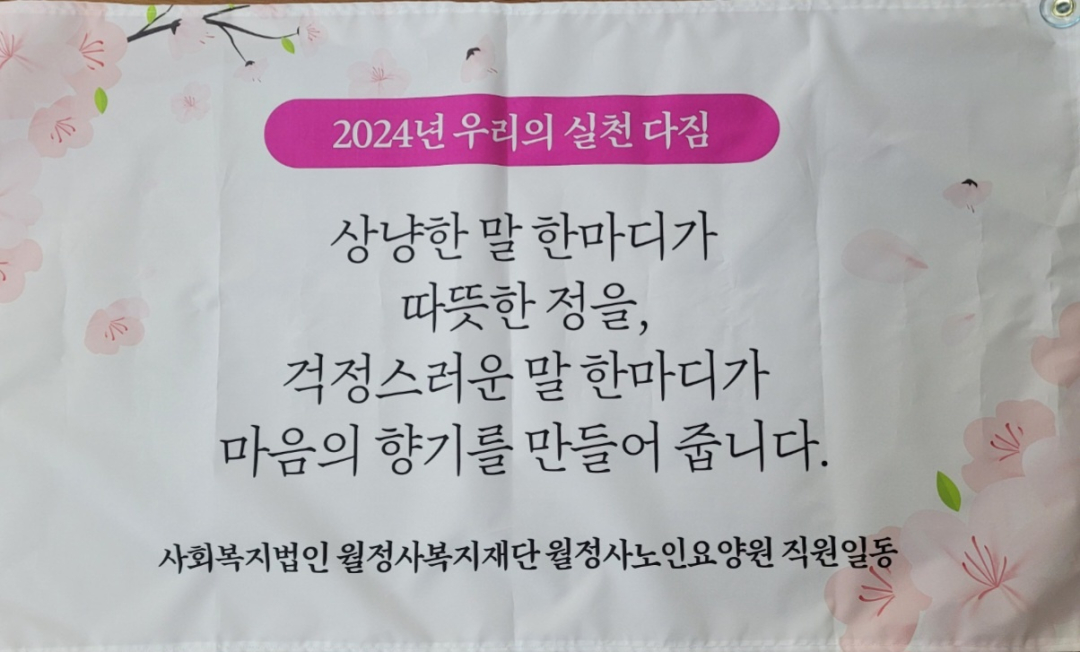 2024년 우리의 실천 다짐
상냥한 말 한마디가
따뜻한 정을,
걱정스러운 말 한마디가
마음의 향기를 만들어 줍니다.
사회복지법인 월정사복지재단 월정사노인요양원 직원일동